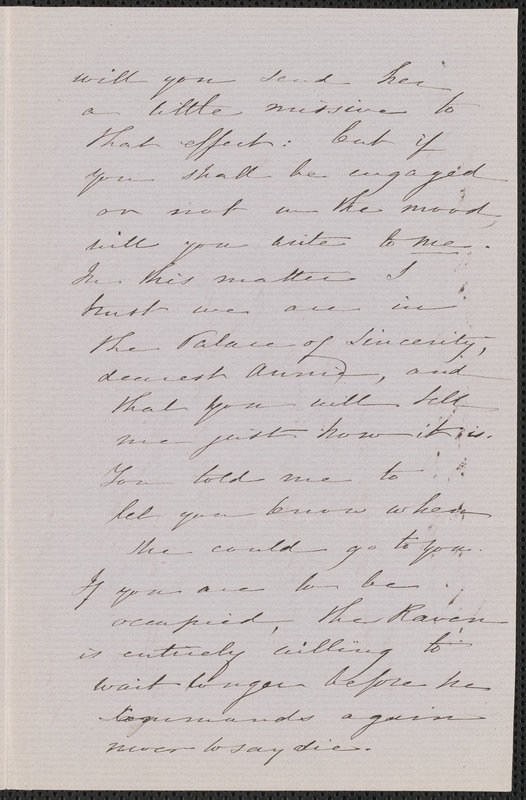 will you send her
a little missive to
that effect: but if
you shall be engaged
or not in the mood,
will you write to me.
In this matter I
trust we are in
the Palace of Sincerity,
dearest Annie, and
that you will tell
me just how it is.
You told me to
let you know when
she could go to you.
If you are to be
occupied, the Raven
is entirely willing to
wait longer before he
commands again
never to say die.